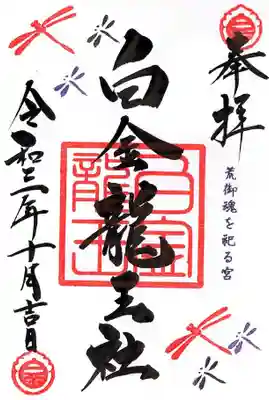 奉拝
荒御魂を祀る宮
白金龍王社
白金龍王
令和二年十月吉日